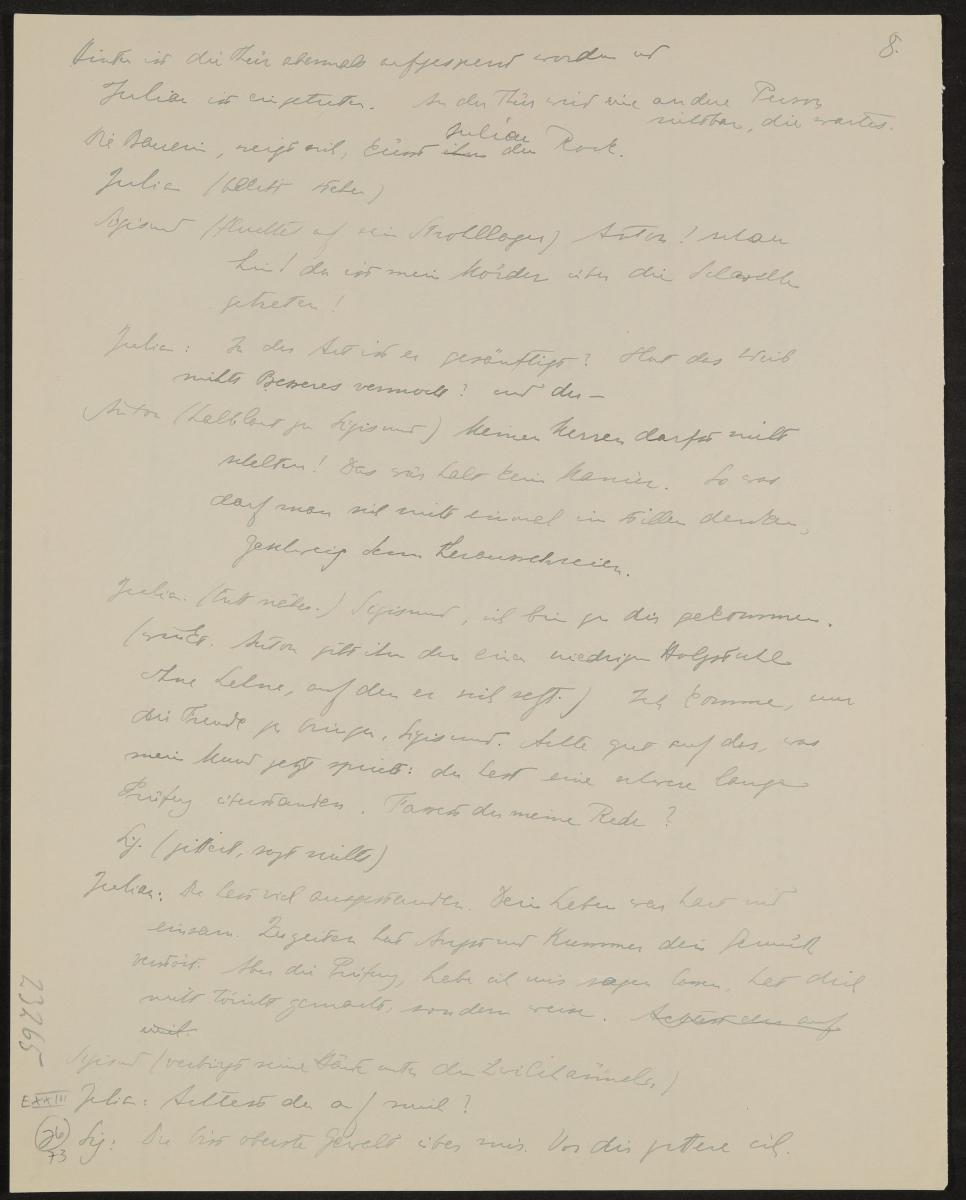 8.
Hinten ist die Thür abermals aufgesperrt worden und
Julian ist eingetreten. In der Thür wird eine andere Person
sichtbar, die wartet.
Die Bäuerin, neigt sich, küsst ihm Julian den Rock.
Julian (bleibt stehen)
Sigismund (flüchtet auf sein Strohllager) Anton! schau
hin! da ist mein Mörder über die Schwelle
getreten!
Julian: In der Art ist er gesänftigt? Hat das Weib
nichts Besseres vermocht? und du —
Anton (halblaut zu Sigismund) Meinen Herren darfst nicht
schelten! Das wär halt kein Manier. So was
darf man sich nicht einmal im stillen denken,
geschweig denn herausschreien.
Julian. (tritt näher.) Sigismund, ich bin zu dir gekommen.
(winkt. Anton gibt ihm den einen niedrigen Holzstuhl
ohne Lehne, auf den er sich setzt.) Ich komme, um
dir Freude zu bringen, Sigismund. Achte gut auf das, was
mein Mund jetzt spricht: du hast eine schwere lange
Prüfung überstanden. Fassest du meine Rede?
Sig. (zittert, sagt nichts)
Julian: Du hast viel ausgestanden. Dein Leben war hart und
einsam. Zu zeiten hat Angst und Kummer dein Gemüth
verstört. Aber die Prüfung, habe ich mir sagen lassen, hat dich
nicht töricht gemacht, sondern weise. Achtest du auf
mich.
Sigismund (verbirgt seine Hände unter den Zwilchärmeln)
Julian: Achtest du auf mich?
Sig: Du bist oberste Gewalt über mir. Vor dir zittere ich.
23265
E XXIII
26
73